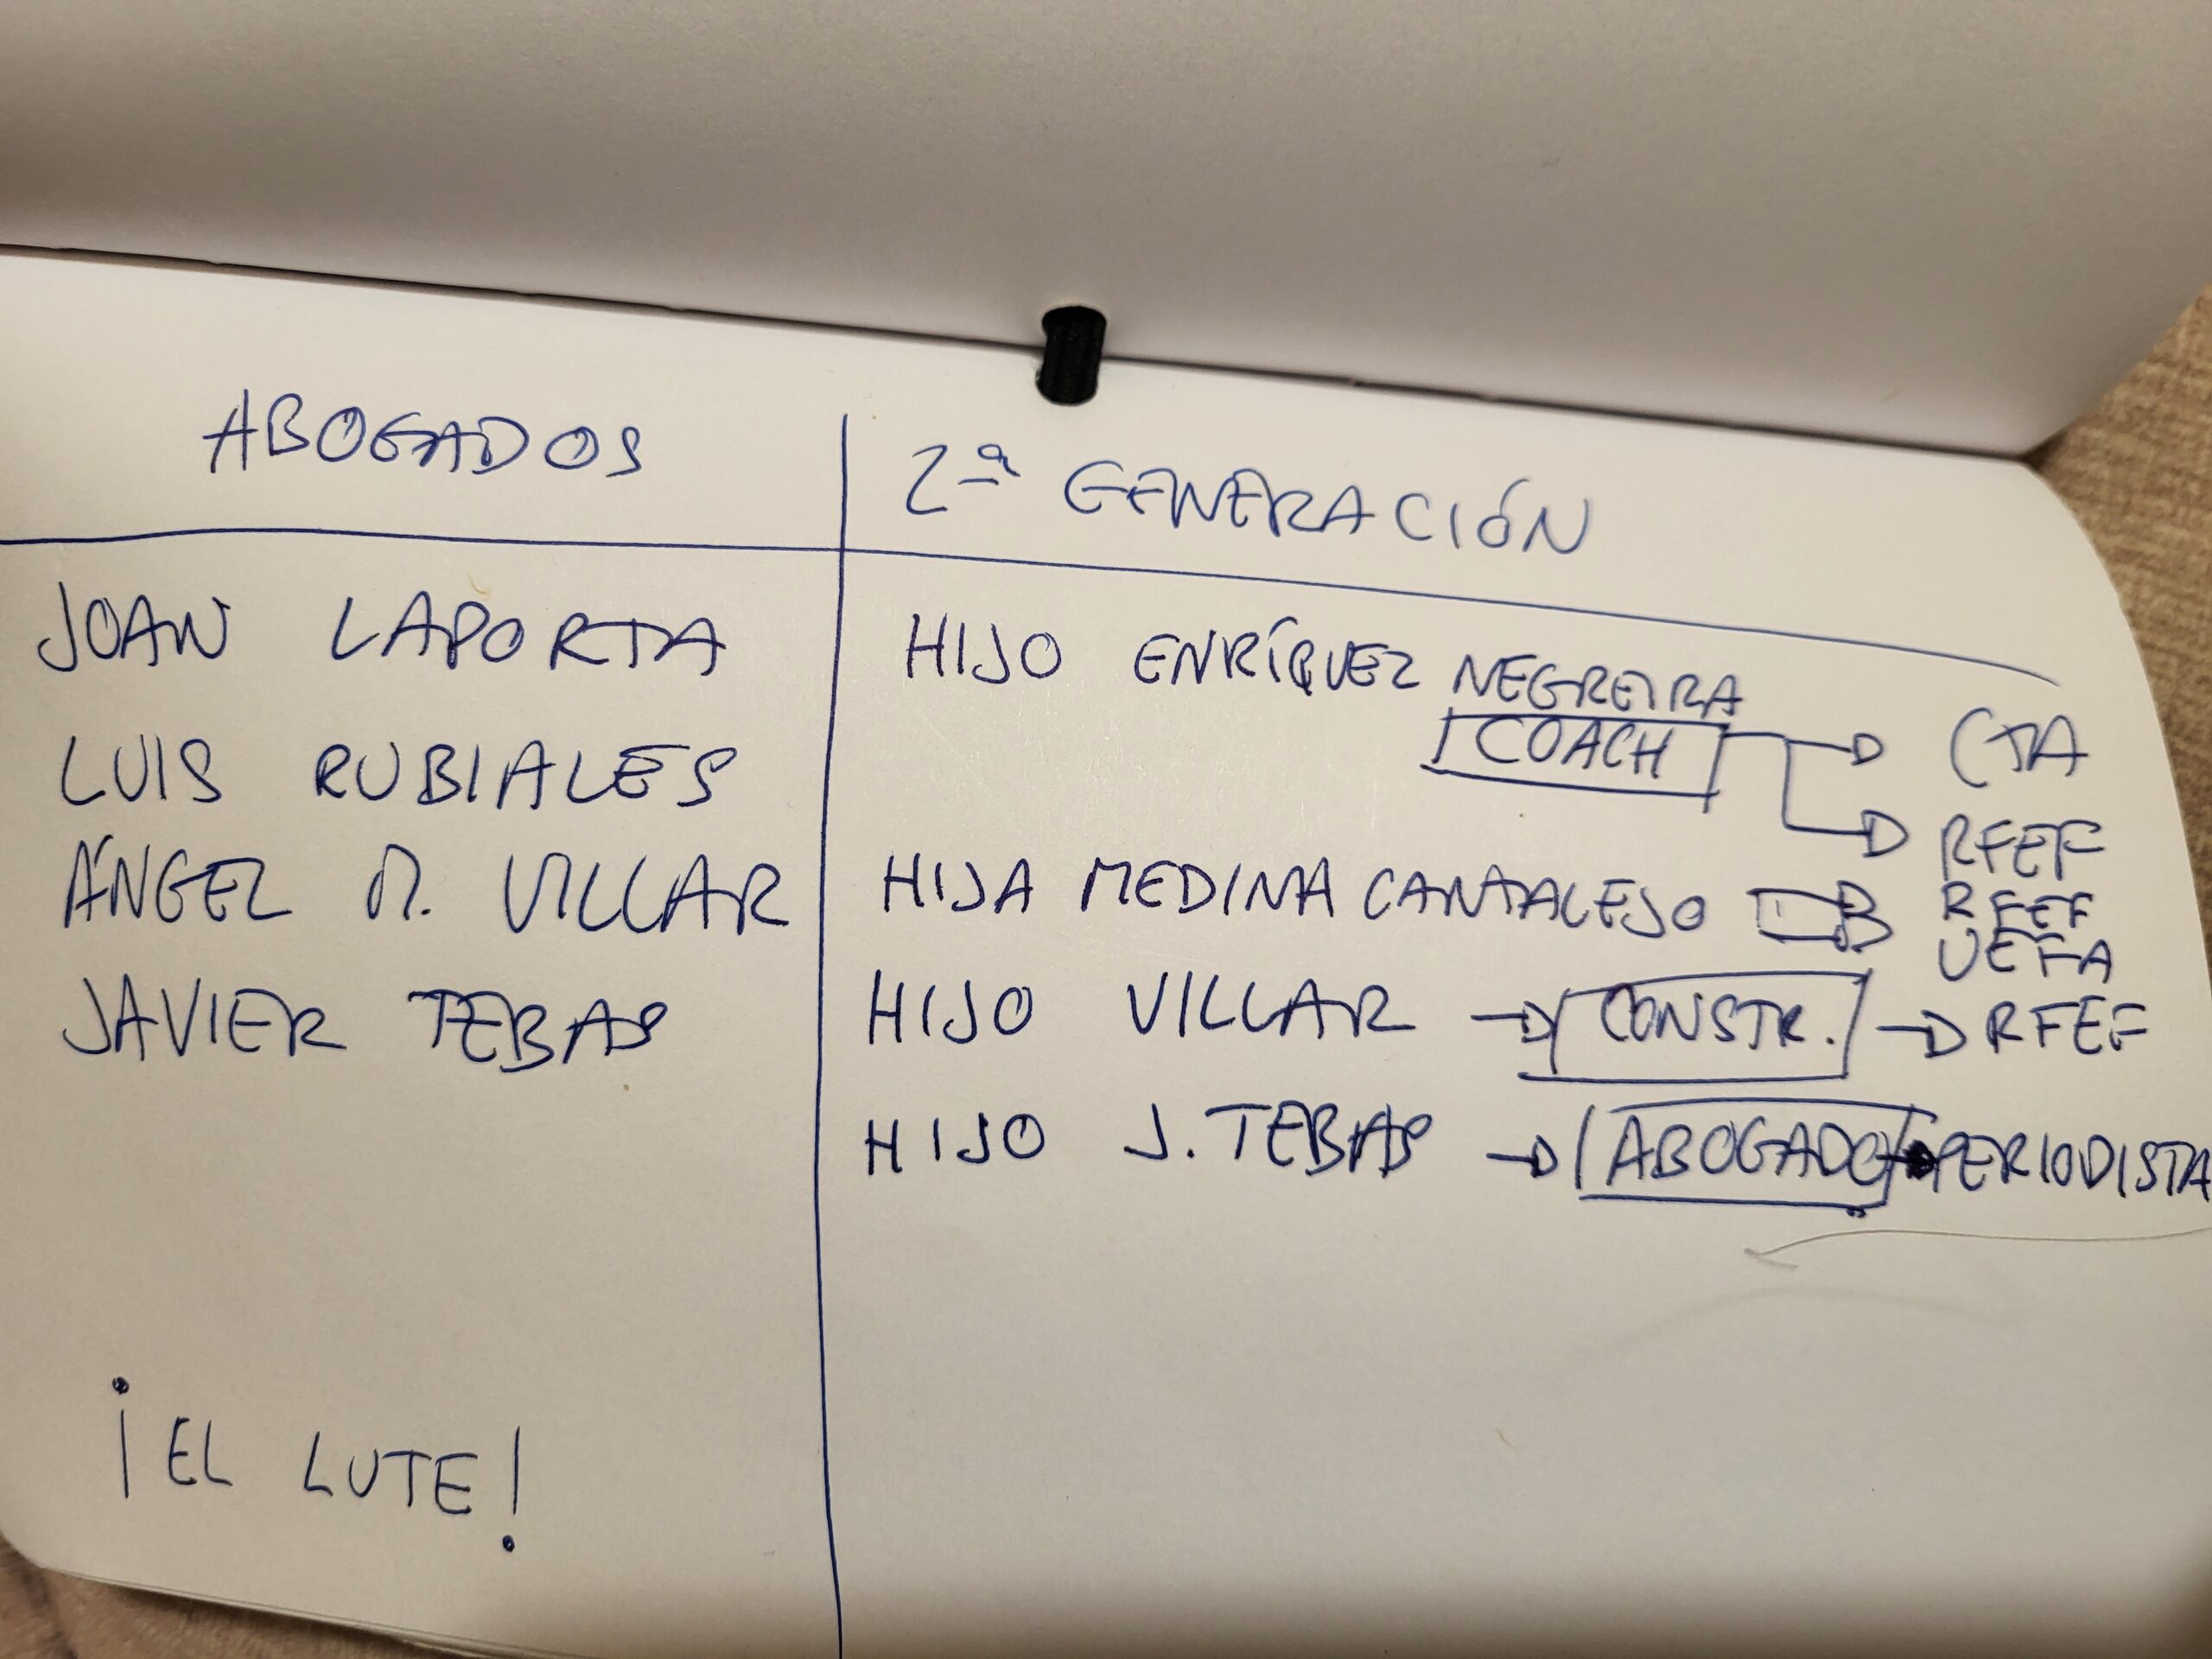 ABOGADOS
JOAN LAPORTA
LUIS RUBIALES
ÁNGEL M. VILLAR
JAVIER TEBAS
¡EL LUTE!
2ª GENERACIÓN
HIJO ENRÍQUEZ NEGREIRA
COACH CTA
RFEF
HIJA MEDINA CANTALEJO RFEF
UEFA
HIJO VILLAR CONSTR. RFEF
HIJO J. TEBAS ABOGADO PERIODISTA